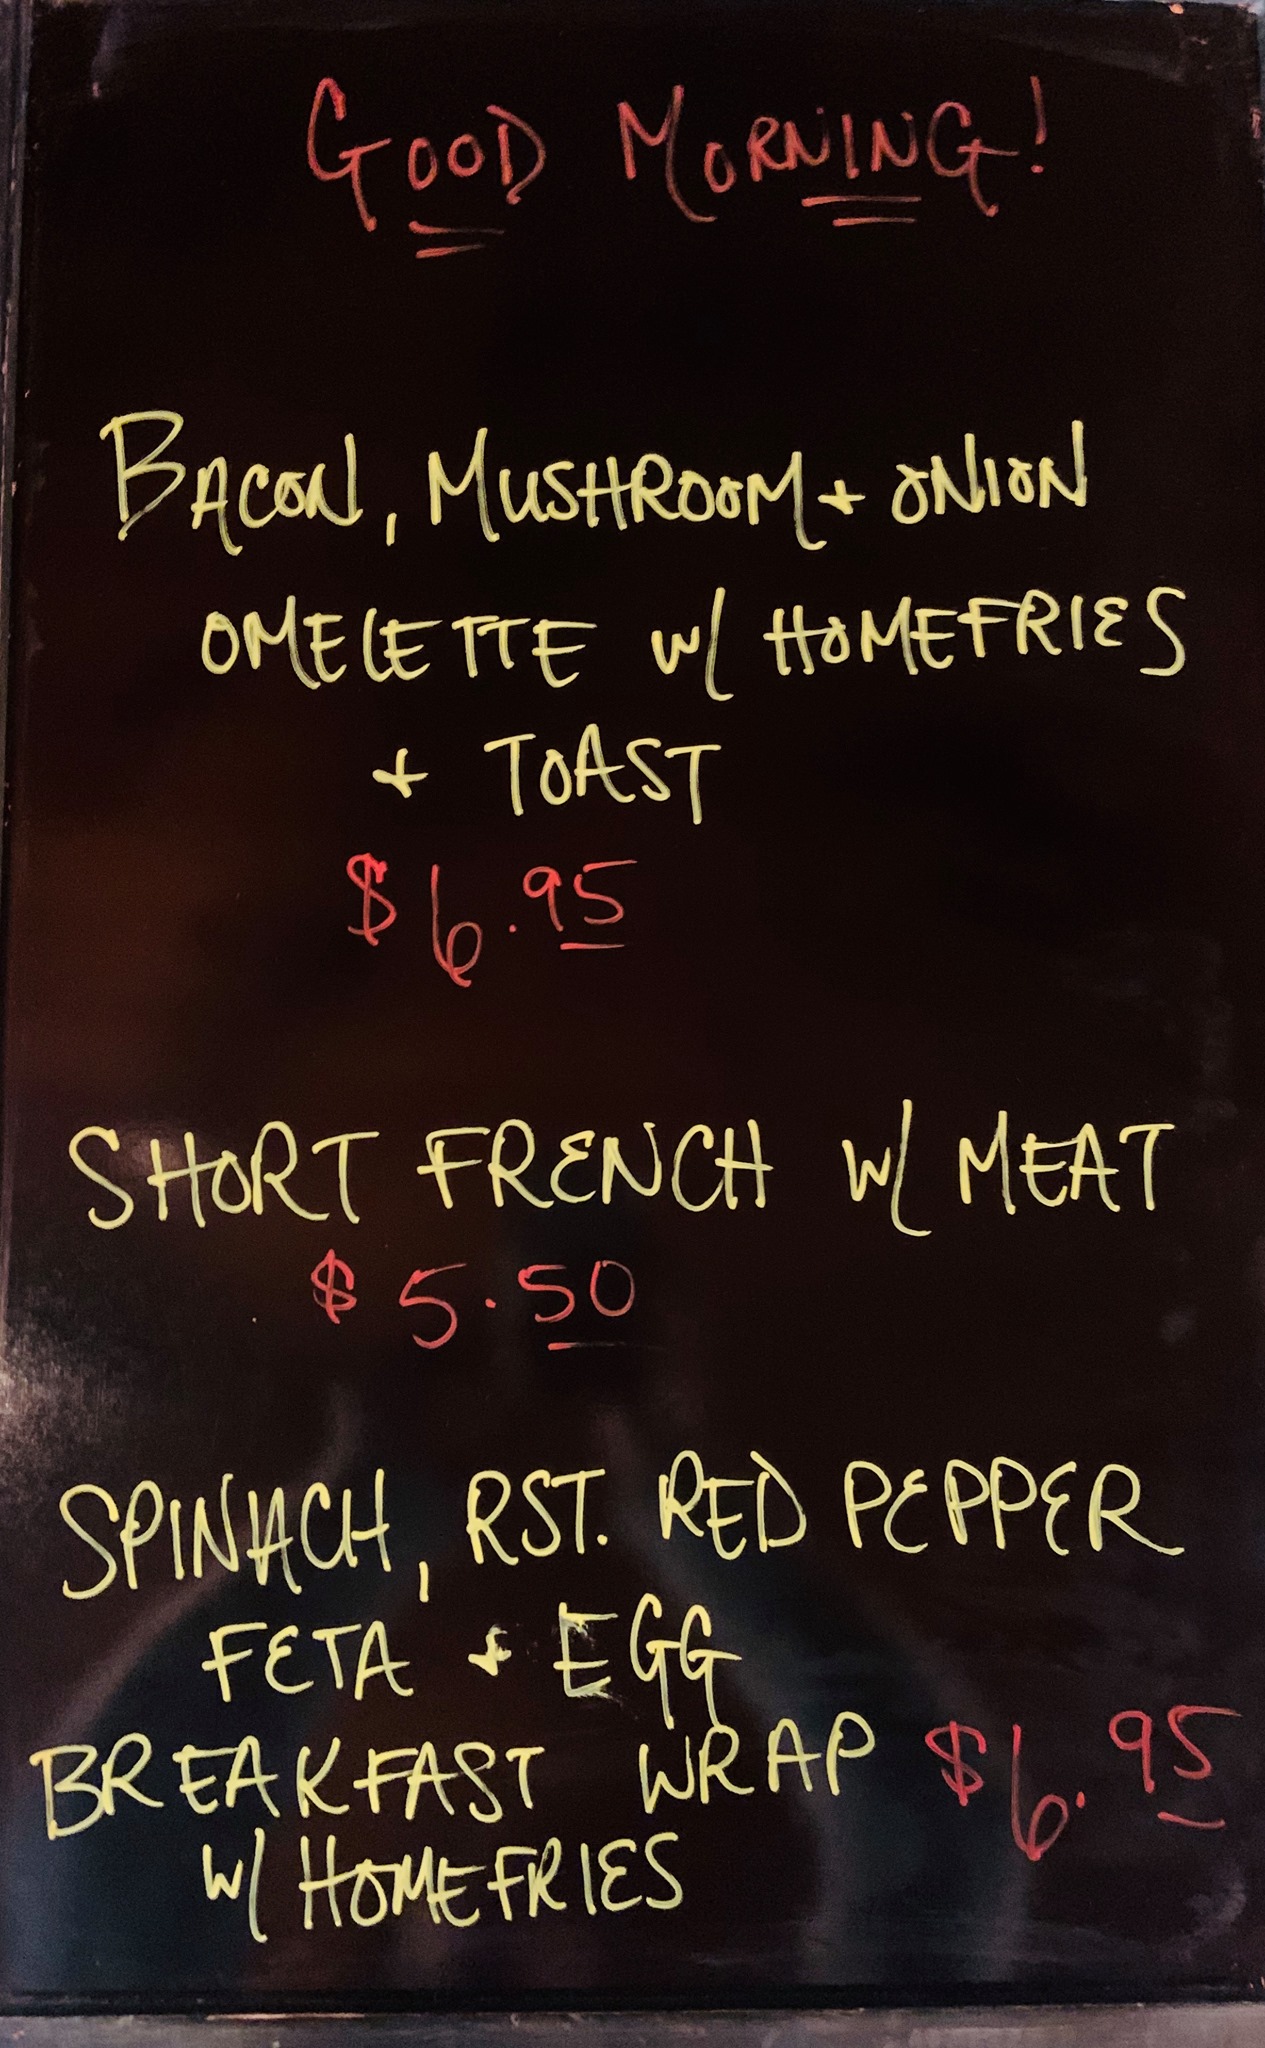 GOOD MORNING!
BACON, MUSHROOM + ONION
OMELETTE W/ HOMEFRIES
+ TOAST
$6.95
SHORT FRENCH W/ MEAT
$5.50
SPINACH, RST. RED PEPPER
FETA + EGG
BREAKFAST WRAP $6.95
W/ HOMEFRIES